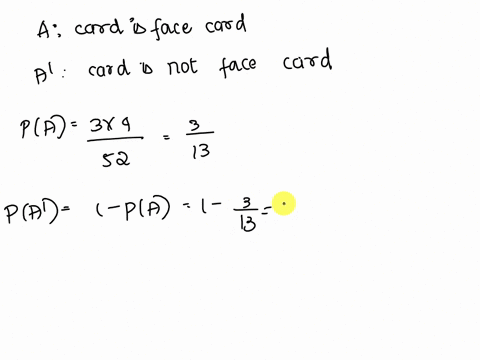 A: card is face card
A': card is not face card
P(A) = 3×4/52 = 3/13
P(A') = 1 - P(A) = 1 - 3/13 =